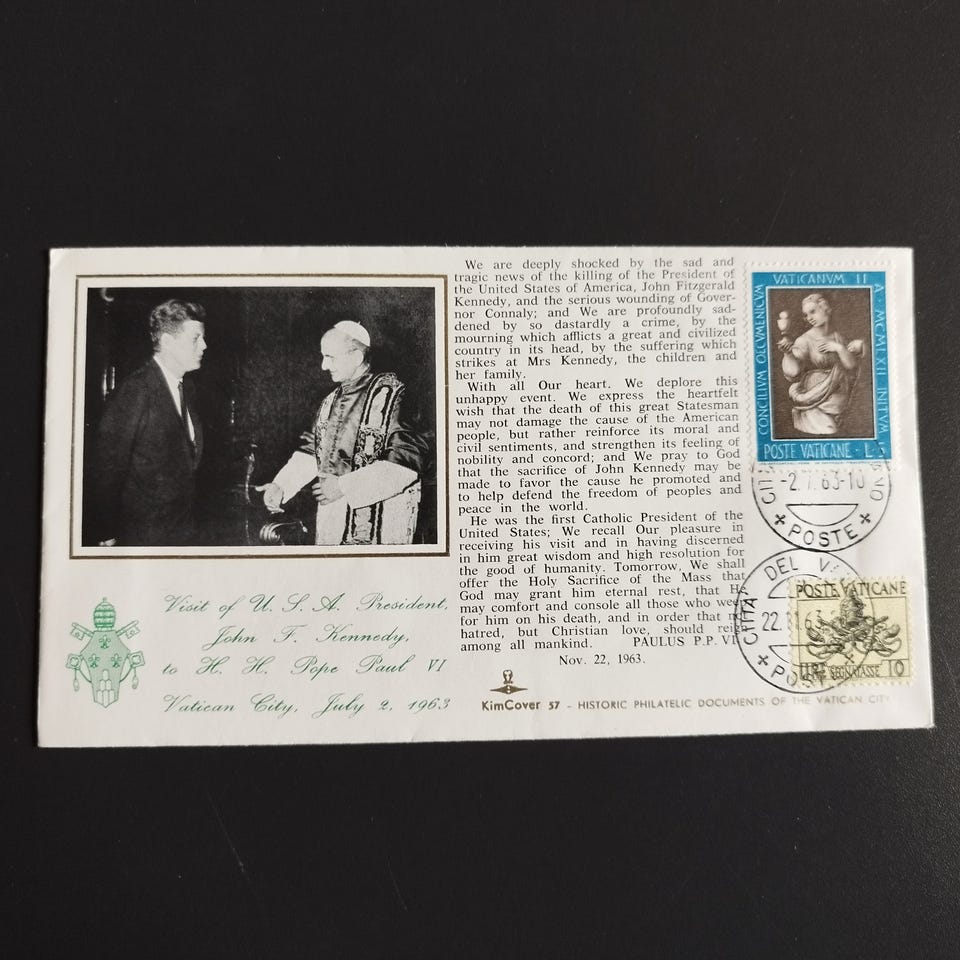 We are deeply shocked by the sad and
tragic news of the killing of the President of
the United States of America, John Fitzgerald
Kennedy, and the serious wounding of Gover-
nor Connaly; and We are profoundly sad-
dened by so dastardly a crime, by the
mourning which afflicts a great and civilized
country in its head, by the suffering which
strikes at Mrs Kennedy, the children and
her family.
With all Our heart. We deplore this
unhappy event. We express the heartfelt
wish that the death of this great Statesman
may not damage the cause of the American
people, but rather reinforce its moral and
civil sentiments, and strengthen its feeling of
nobility and concord; and We pray to God
that the sacrifice of John Kennedy may be
made to favor the cause he promoted and
to help defend the freedom of peoples and
peace in the world.
He was the first Catholic President of the
United States; We recall Our pleasure in
receiving his visit and in having discerned
in him great wisdom and high resolution for
the good of humanity. Tomorrow, We shall
offer the Holy Sacrifice of the Mass that
God may grant him eternal rest, that He
may comfort and console all those who weep
for him on his death, and in order that not
hatred, but Christian love, should reign
among all mankind. PAULUS P.P. VI
Nov. 22, 1963.
Visit of U. S. A. President,
John F. Kennedy,
to H. H. Pope Paul VI
Vatican City, July 2, 1963
KimCover 57 - HISTORIC PHILATELIC DOCUMENTS OF THE VATICAN CITY
CONCILIVM OECVMENICVM
VATICANVM II
A · MCMLXII INITVM
POSTE VATICANE · L
-2.7.63-10
POSTE
CITTA DEL
22.11.63
POSTE VATICANE
LIRE SEGNATASSE 10